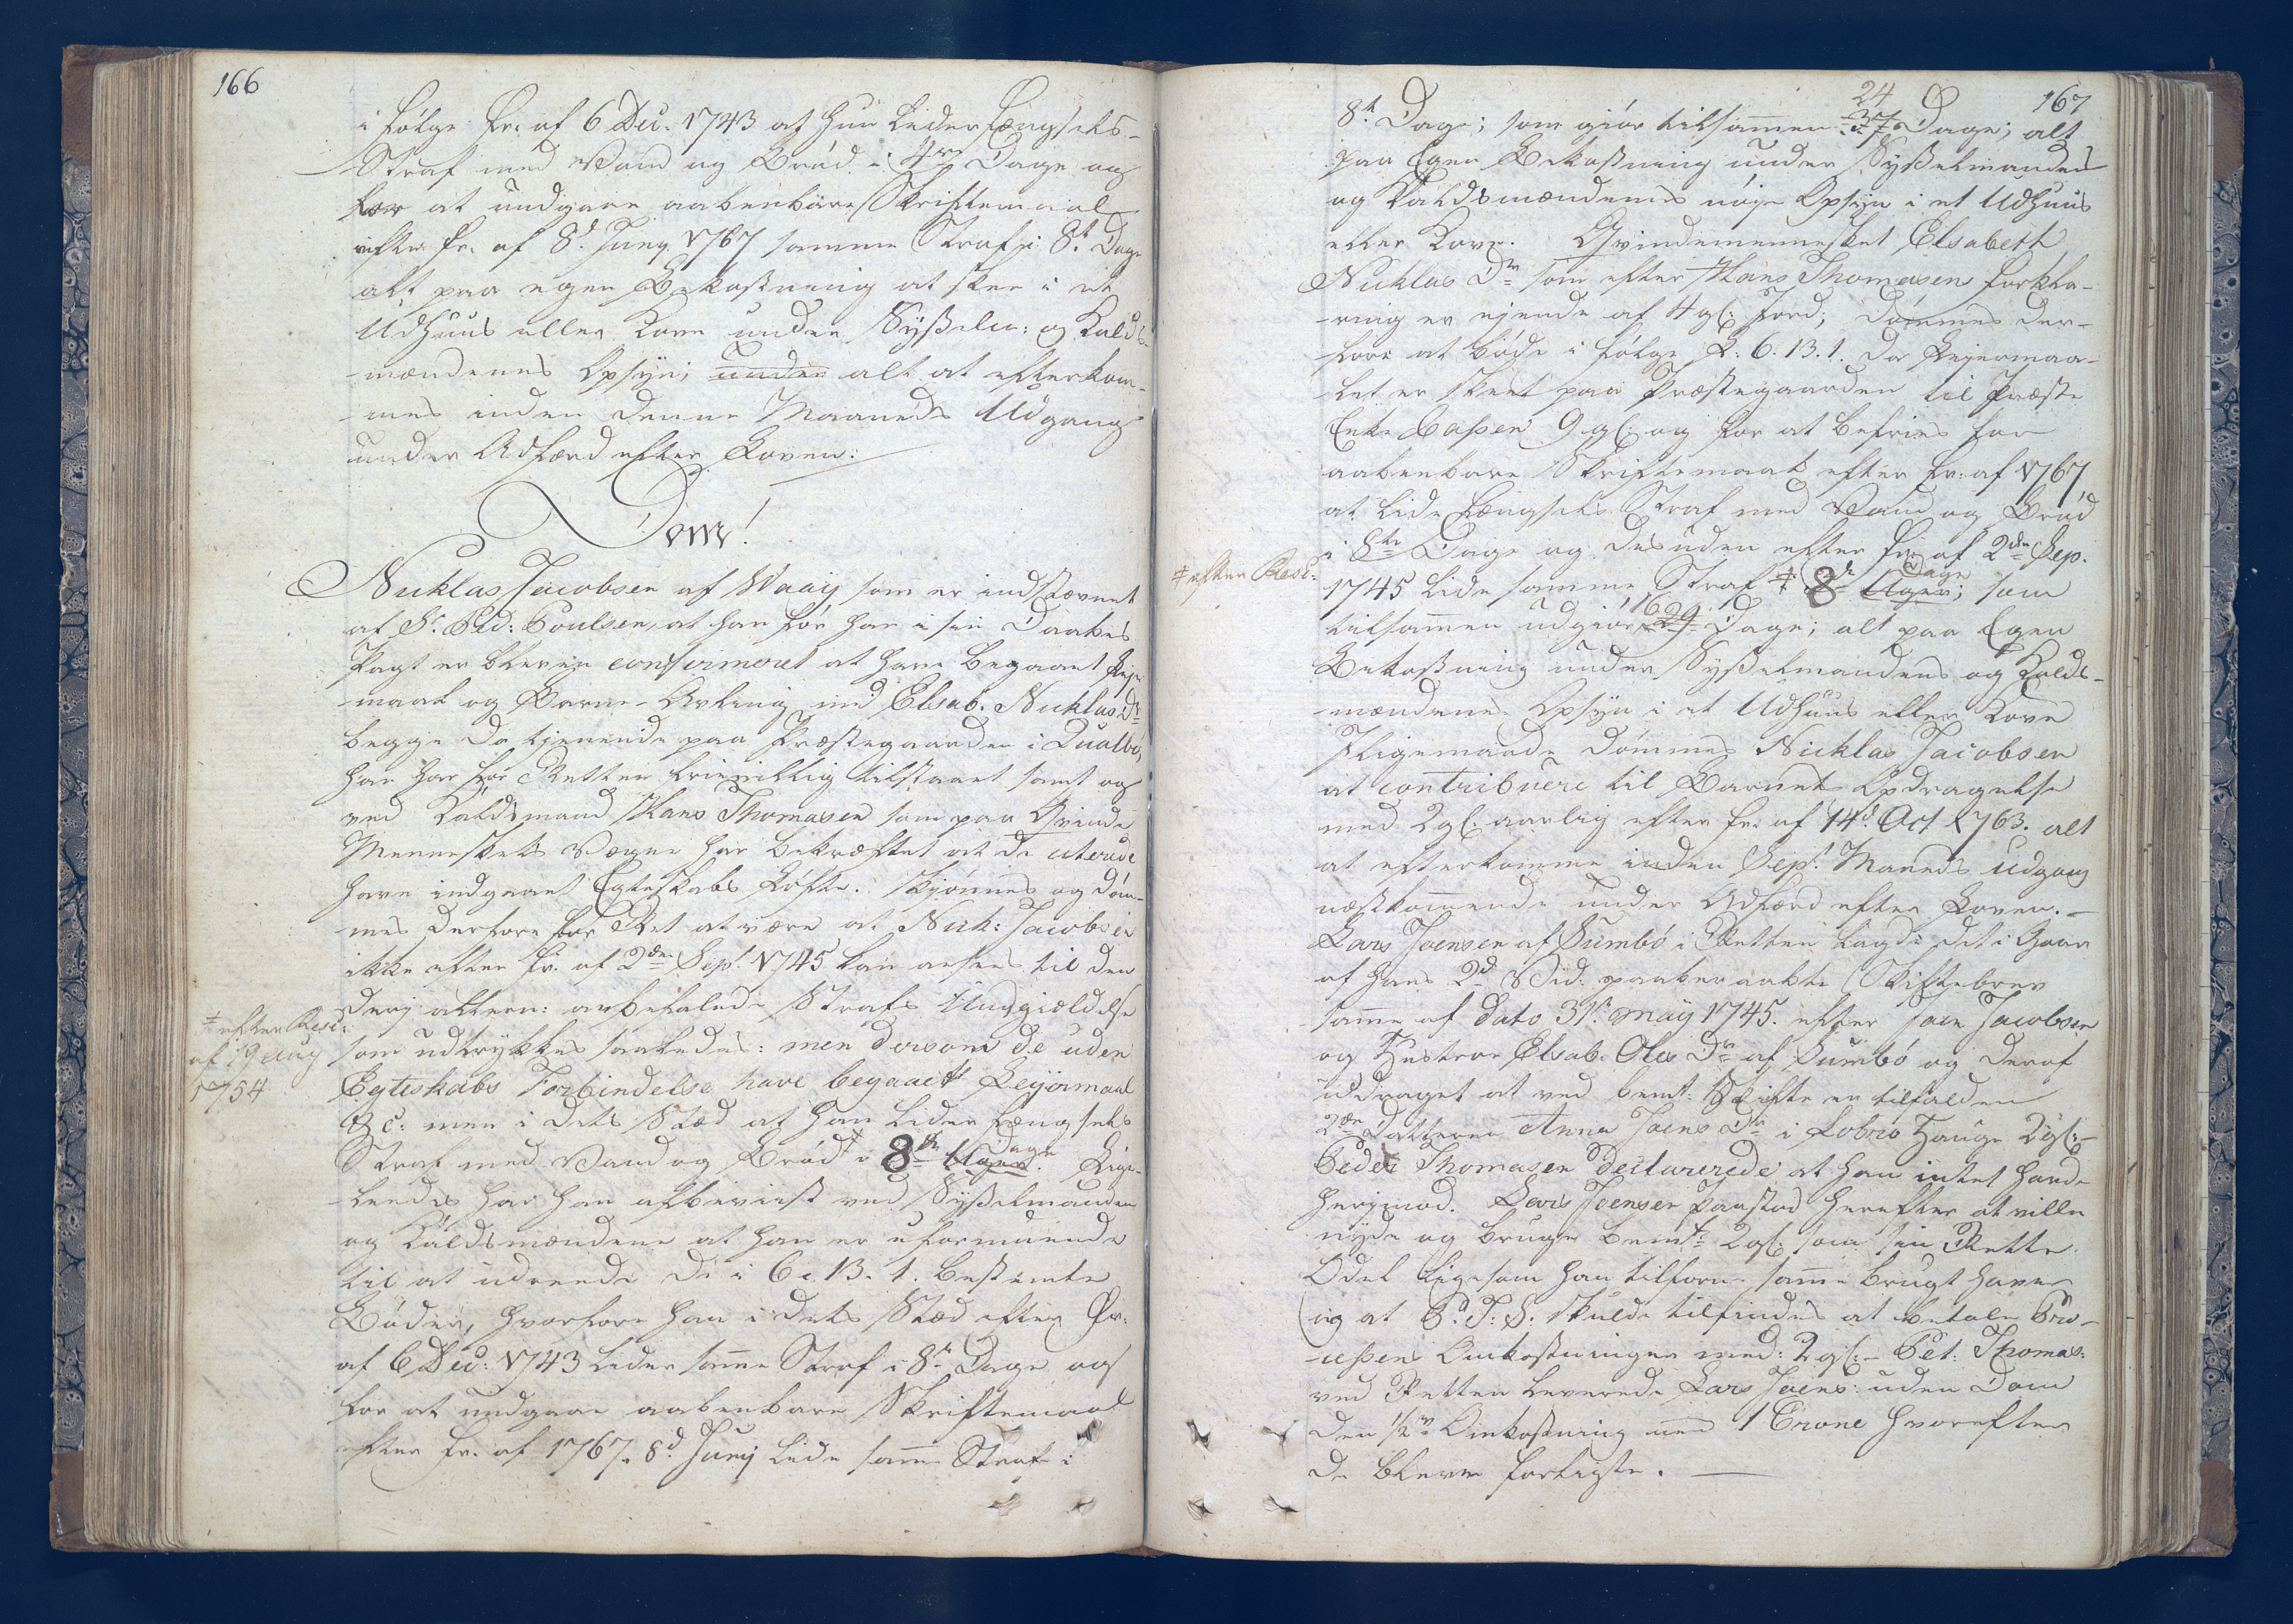 166
i følge Fr. af 6 Dec. 1743 at hun lider Fængsels-
Straf med Vand og Brød i 4re Dage og
for at undgaae aabenbare Skriftemaal
efter Fr. af 8d. Juny 1767 samme Straf i 8t. Dage
alt paa egen Bekostning at skee i et
Udhuus eller Kove under Sysselm: og Kalds-
-mændenes Opsyn; under alt at efterkom-
-mes inden denne Maaneds Udgang
under Adfærd efter Loven:
Dom!
Nicklas Jacobsen af Waaij som er indstævnet
af Sr. Ped: Poulsen, at han før han i sin Daabes
Pagt er bleven confirmeret at have begaaet Leje-
-maal og Barne-Avling med Elsab. Nicklas Dr.
begge da tjenende paa Præstegaarden i Qualbø,
han har for Retten frievillig tilstaaet samt og
ved Kaldsmand Hans Thomasen som paa Qvinde
Menneskets Vegne har bekræftet at de
have indgaaet Egteskabs Løfte. Skjønnes og døm-
-mes derfore for Ret at være at Nick: Jacobsen
ikke efter Fr. af 2den Sept. 1745 kan ansees til den
derj anbefalede Strafs Undgieldelse
som udtrykkes saaledes: men dersom de uden
Egteskabs Forbindelse have begaaet Leyermaal
&c: men i dets Stæd at han lider Fængsels
Straf med Vand og Brød ‡ i 8te Uger. Dage Lige-
-leedes har han afbeviist ved Sysselmanden
og Kaldsmændene at han er uformuende
til at udreede de i 6. 13. 1. bestemte
Bøder, hvorfore han i dets Stæd efter Fr.
af 6 Dec: 1743 lider same Straf i 8te Dage og
for at undgaae aabenbare Skriftemaal
efter Fr. af 1767. 8d. Junij lide same Straf i
‡ efter Resc:
af 19 Aug
1754
167
8te Dage; som giør tilsamen 24 37 Dage; alt
paa Egen Bekostning under Sysselmandens
og Kaldsmændenes nøje Opsyn i et Udhuus
eller Kove. Qvindemennesket Elsabeth
Nicklas Dr. som efter Hans Thomasens Forkla-
-ring er ejende af 4 gl: Jord; Dømmes der-
-fore at bøde i følge L: 6. 13. 1. da Lejermaa-
-let er skeet paa Præstegaarden til Præste
Enke 9 gl: og for at befries for
aabenbare Skriftemaal efter Fr: af 1767
at lide Fængsels Straf med Vand og Brød
i 8te Dage og desuden efter Fr: af 2den Sep.
1745 lide samme Straf ‡ 8te Uger; Dage som
tilsamen udgiør 16 29 Dage; alt paa Egen
Bekostning under Sysselmandens og Kalds-
-mændenes Opsyn i et Udhuus eller Kove
Fligemaade Dømmes Nicklas Jacobsen
at contribuere til Barnets Opdragelse
med 2 gl: aarlig efter Fr. af 14d. Oct 1763. alt
at efterkomme inden Sept. Maaneds Udgang
næstkomende under Adfærd efter Loven. —
Lars Joensen af Sumbø i Retten lagde det i Gaar
af hans 2d. Vid: paaberaabte Skiftebrev
same af Dato 31t. May 1745. efter Joen Jacobsen
og Hustrue Elsab. Oles Dr. af Sumbø og deraf
udraget at ved bemt: Skifte er tilfalden
2den Datteren Anna Joens Dr. i Lobrø Hauge 2 gl: —
Peder Thomasen declarerede at han intet havde
herjmod. Lars Joensen paastod herefter at ville
nyde og bruge bemt: 2 gl: som sin Rette
Odel ligesom han tilforn same brugt haver
og at P. T. S. skulde tilfindes at betale Pro-
-cessens Omkostninger med: 2 gl: — Pet: Thomas:
ved Retten leverede Lars Joens: uden Dom
den 1/2 Omkostning med 1 Crone hvorefter
de bleve forligte. —
‡ efter Resc: